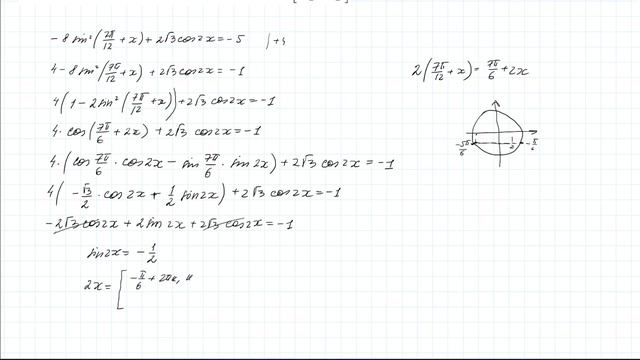 -8 sin²(7π/12 + x) + 2√3 cos2x = -5 |+4
4 - 8 sin²(7π/12 + x) + 2√3 cos2x = -1
4(1 - 2 sin²(7π/12 + x)) + 2√3 cos2x = -1
4 · cos(7π/6 + 2x) + 2√3 cos2x = -1
4 · (cos 7π/6 · cos2x - sin 7π/6 · sin 2x) + 2√3 cos2x = -1
4(-√3/2 · cos2x + 1/2 sin2x) + 2√3 cos2x = -1
-2√3 cos2x + 2 sin 2x + 2√3 cos2x = -1
sin2x = -1/2
2x = [ -π/6 + 2πk, к
2(7π/12 + x) = 7π/6 + 2x
-5π/6 1/2 -π/6